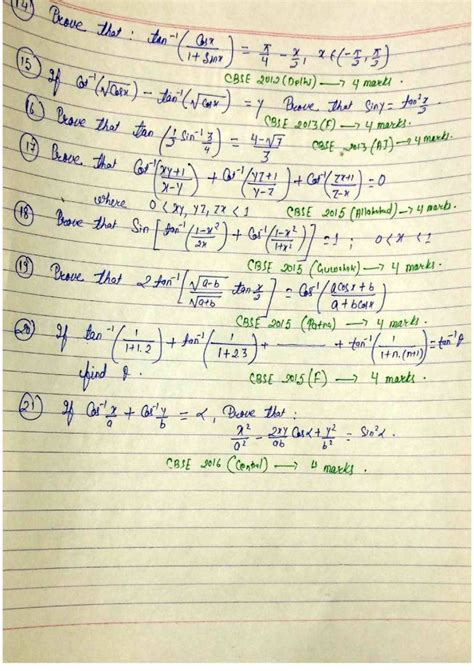 14) Prove that : tan⁻¹(Cosx / 1 + Sinx) = π/4 - x/2, x ∈ (-π/2, π/2)
CBSE 2012 (Delhi) → 4 marks.
15) If Cot⁻¹(√Cosx) - tan⁻¹(√Cosx) = y Prove that Siny = tan²x/2
CBSE 2013 (F) → 4 marks.
16) Prove that tan(1/2 Sin⁻¹ 3/4) = 4-√7 / 3
CBSE 2013 (AI) → 4 marks.
17) Prove that Cot⁻¹(xy+1 / x-y) + Cot⁻¹(yz+1 / y-z) + Cot⁻¹(zx+1 / z-x) = 0
where 0 < xy, yz, zx < 1
CBSE 2015 (Allahabad) → 4 marks.
18) Prove that Sin[tan⁻¹(1-x² / 2x) + Cos⁻¹(1-x² / 1+x²)] = 1 ; 0 < x < 1
CBSE 2015 → 4 marks.
19) Prove that 2 tan⁻¹[√a-b / √a+b tan x/2] = Cos⁻¹(a cosx + b / a + b cosx)
CBSE 2015 (Patna) → 4 marks.
20) If tan⁻¹(1 / 1+1.2) + tan⁻¹(1 / 1+2.3) + ------ + tan⁻¹(1 / 1+n.(n+1)) = tan⁻¹θ
find θ.
CBSE 2015 (F) → 4 marks.
21) If Cos⁻¹ x/a + Cos⁻¹ y/b = α, Prove that :
x²/a² - 2xy/ab Cosα + y²/b² = Sin²α.
CBSE 2016 (Central) → 4 marks.